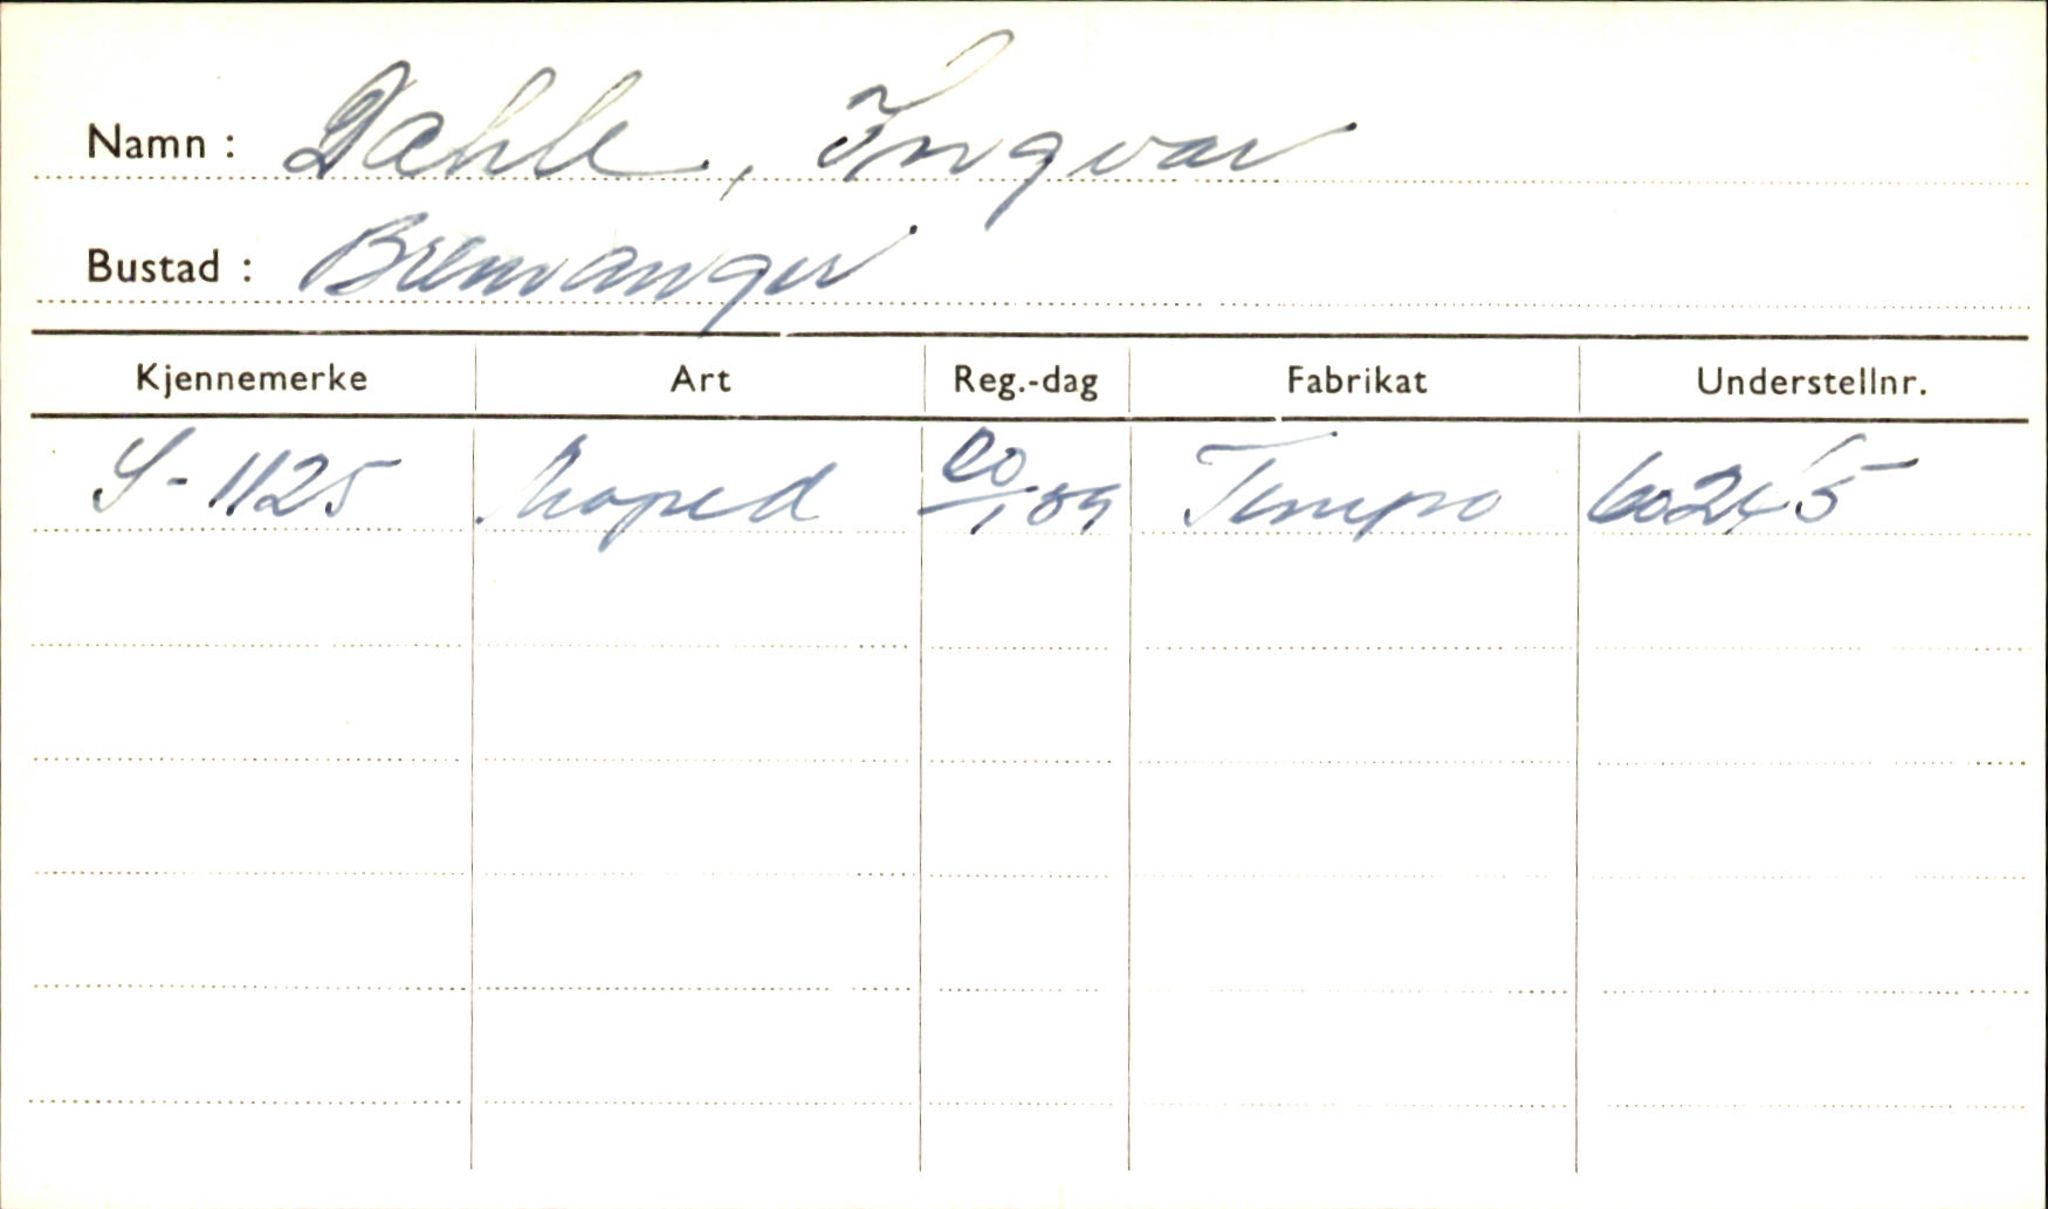 Namn : Dahle, Ingvar
Bustad : Bremanger
Kjennemerke Art Reg.-dag Fabrikat Understellnr.
S-1125 Moped 20/1 59 Tempo 60245